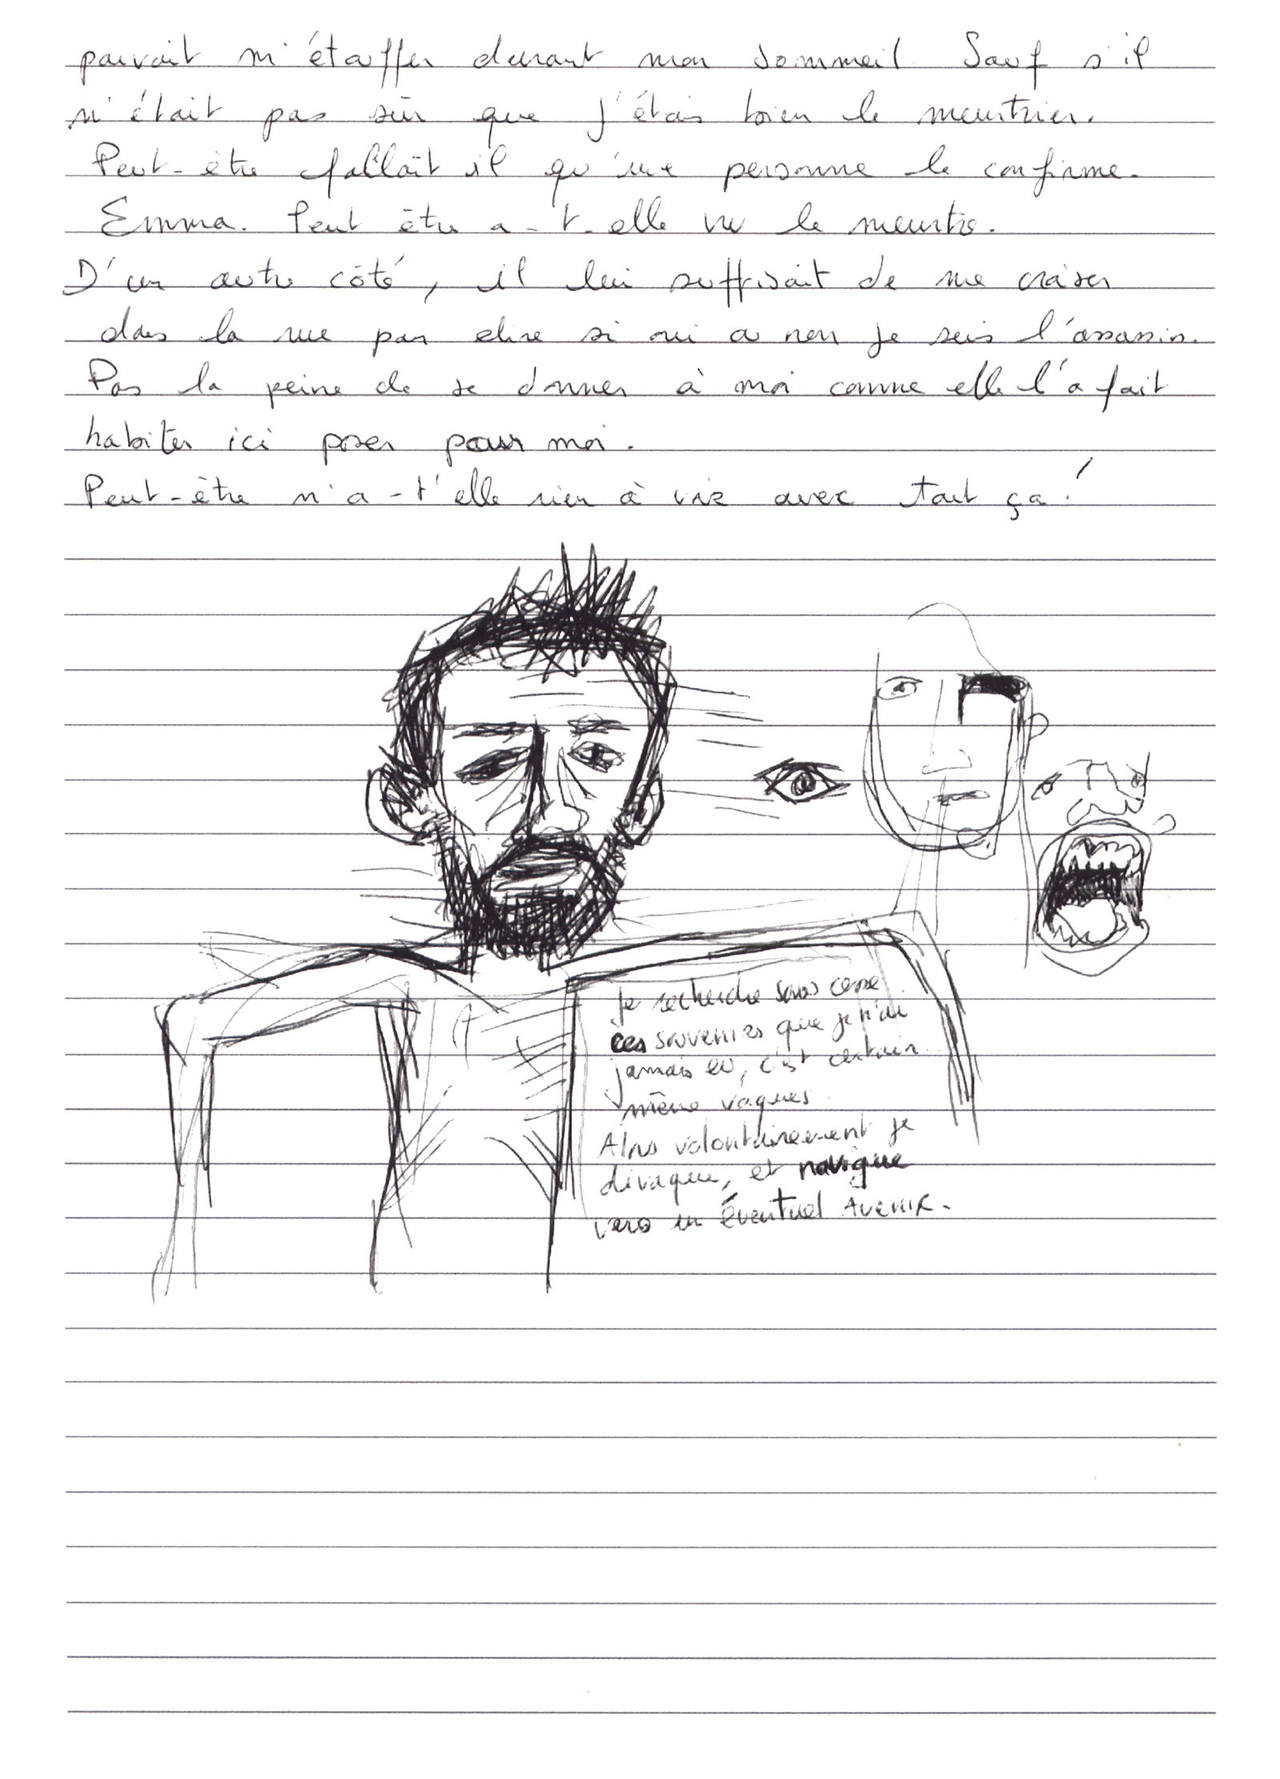 pouvait m'étouffer durant mon sommeil. Sauf s'il
n'était pas sûr que j'étais bien le meurtrier.
Peut-être fallait il qu'une personne le confirme.
Emma. Peut être a-t-elle vu le meurtre.
D'un autre côté, il lui suffisait de me croiser
dans la rue pour dire si oui ou non je suis l'assassin.
Pas la peine de se donner à moi comme elle l'a fait
habiter ici poser pour moi.
Peut-être n'a-t'elle rien à voir avec tout ça !
Je recherche sans cesse
ces souvenirs que je n'ai
jamais eu, c'est certain
même vagues.
Alors volontairement je
divague, et navigue
vers un éventuel AVENIR.